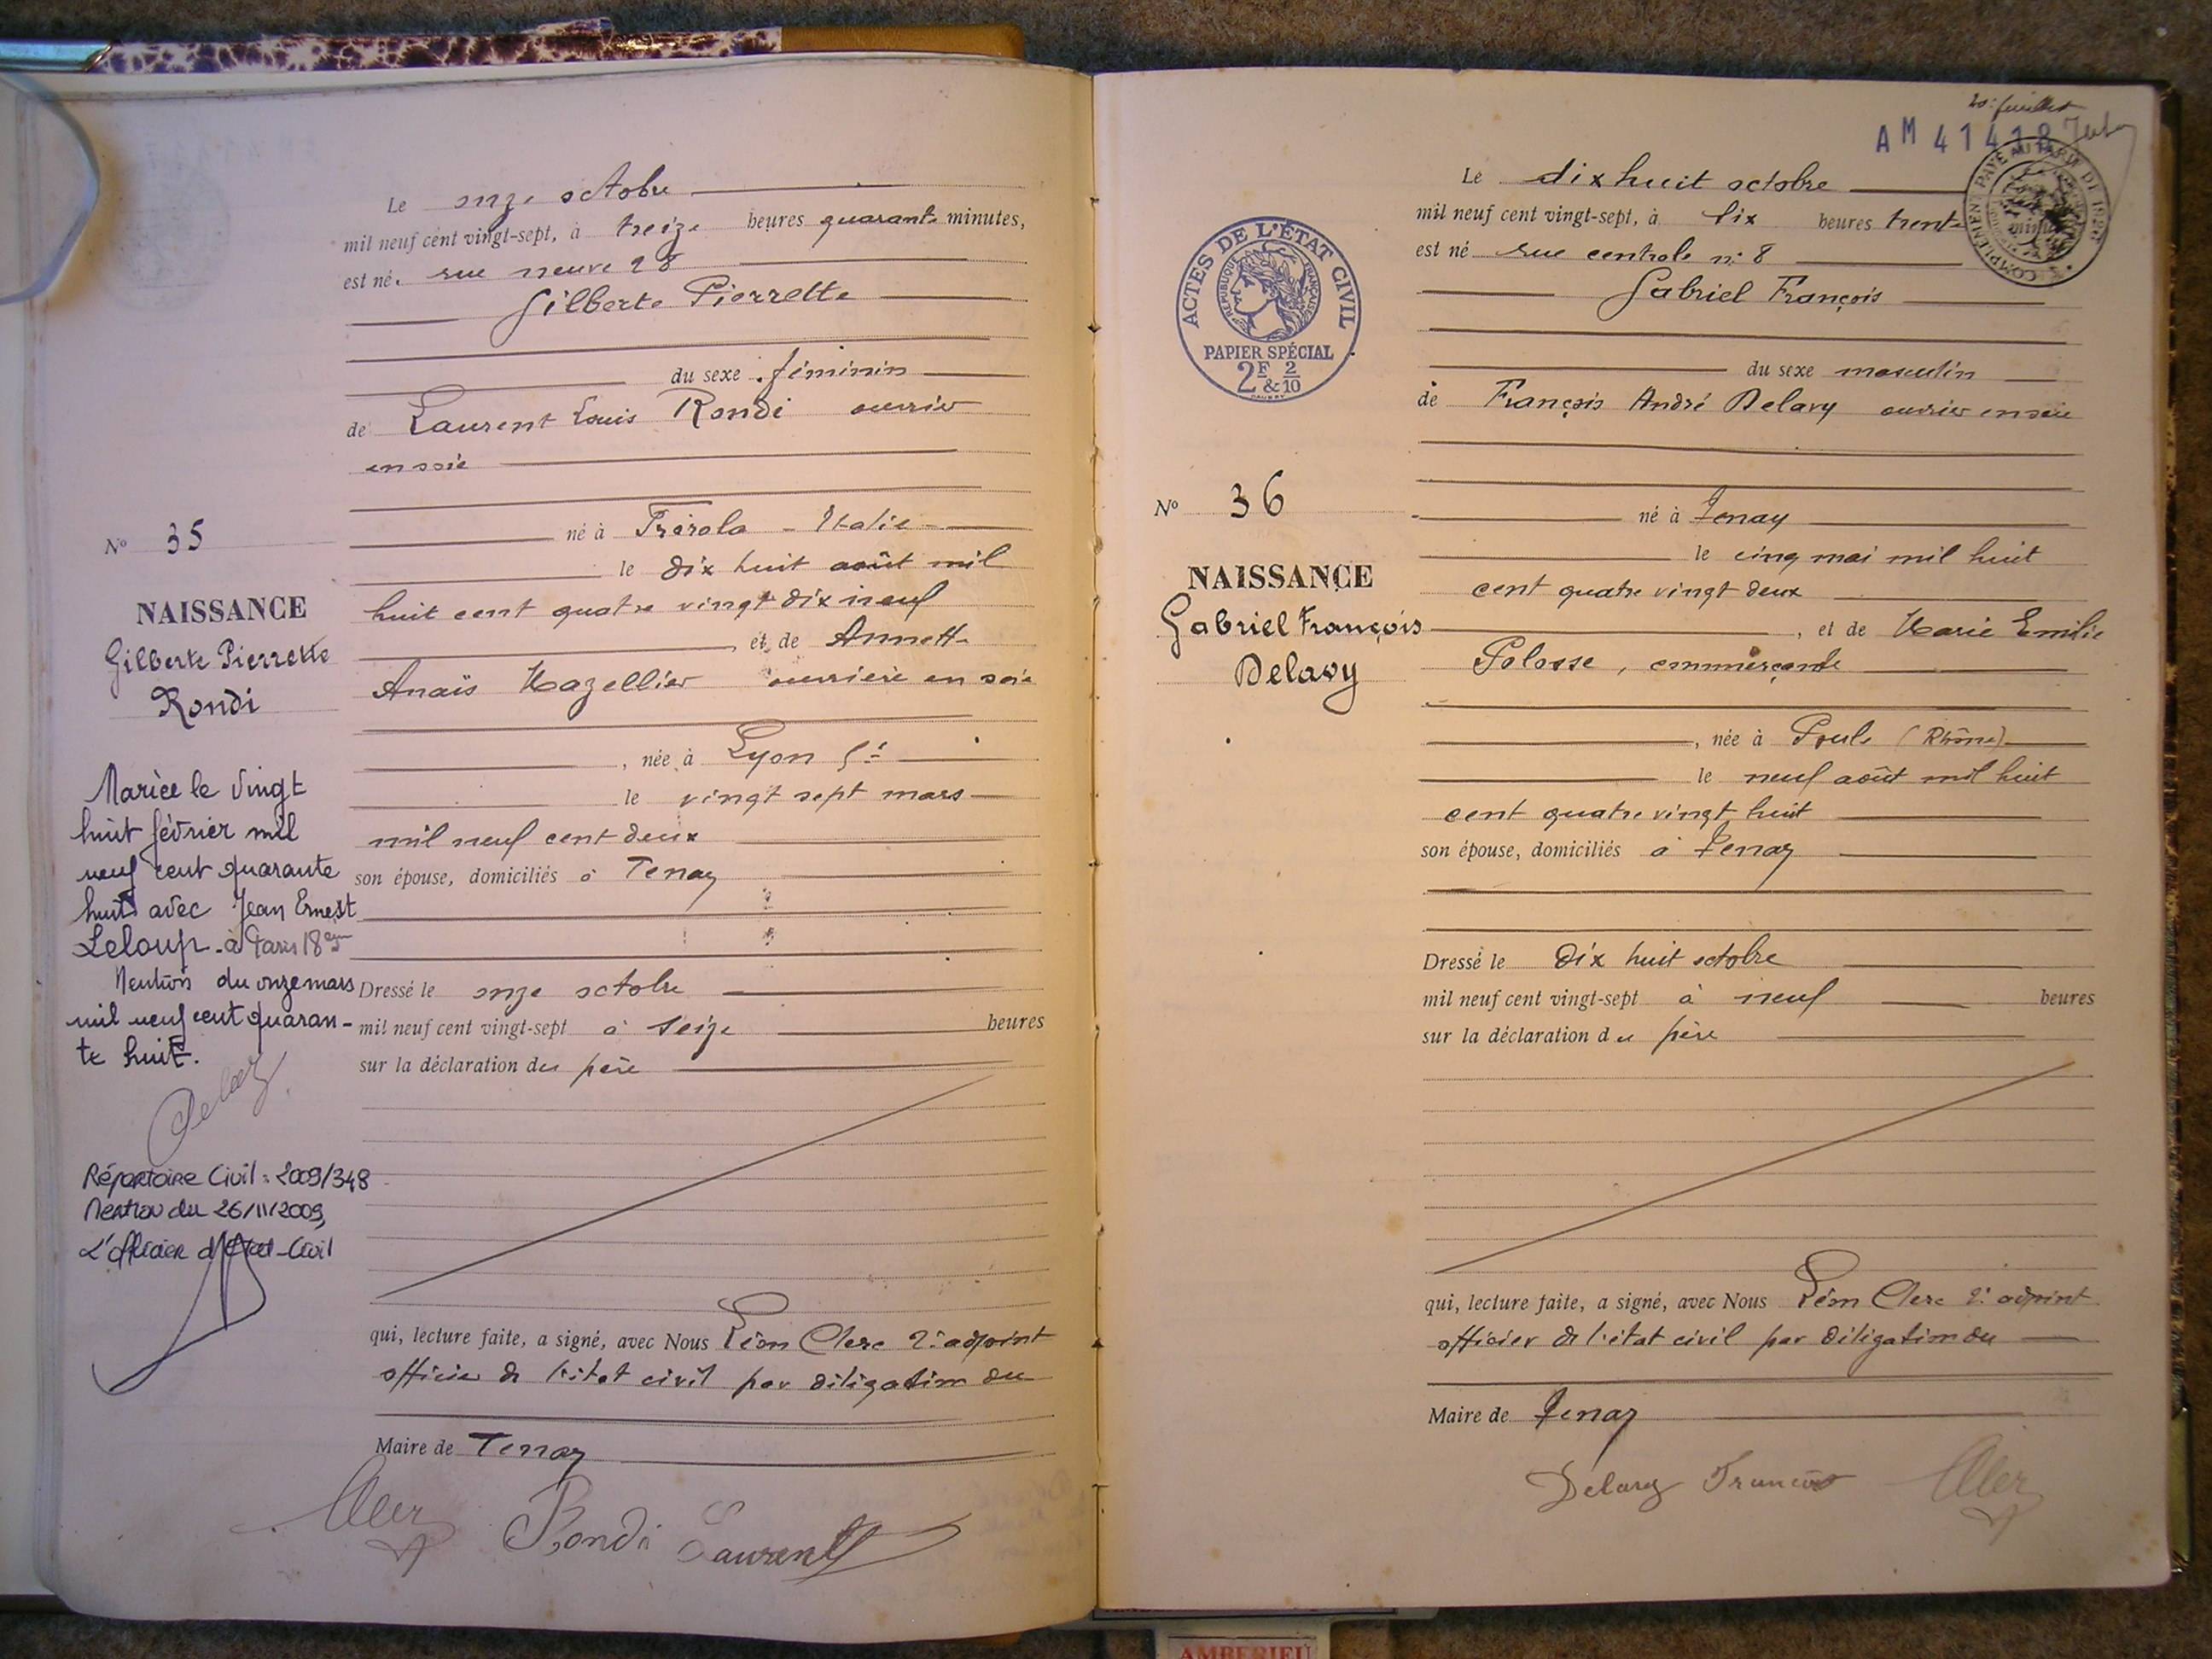 Le onze octobre
mil neuf cent vingt-sept, à treize heures quarante minutes,
est né. rue neuve 28
Gilberte Pierrette
du sexe féminin
de Laurent Louis Rondi ouvrier
en soie
né à Italie
le dix huit août mil
huit cent quatre vingt dix neuf
et de Annette
Anaïs Mazellier ouvrière en soie
, née à Lyon
le vingt sept mars
mil neuf cent deux
son épouse, domiciliés à Tenay
Dressé le onze octobre
mil neuf cent vingt-sept à seize heures
sur la déclaration du père
qui, lecture faite, a signé, avec Nous Léon Clerc 2e adjoint
officier de l'état civil par déligation du
Maire de Tenay
Rondi Laurent
No 35
NAISSANCE
Gilberte Pierrette
Rondi
Mariée le vingt
huit février mil
neuf cent quarante
huit avec Jean Ernest
Leloup - à Paris 18e
Mention du onze mars
mil neuf cent quaran-
te huit.
Répertoire Civil : 2009/348
Mention du 26/11/2009,
L'officier d'Etat-Civil
20e feuillet
AM 41418
COMPLÉMENT PAYÉ AU TARIF DE
ACTES DE L'ÉTAT CIVIL
RÉPUBLIQUE FRANÇAISE
PAPIER SPÉCIAL
2F & 2/10
Le dix huit octobre
mil neuf cent vingt-sept, à six heures trente
est né rue centrale n° 8
Gabriel François
du sexe masculin
de François André Delavy ouvrier en soie
né à Tenay
le cinq mai mil huit
cent quatre vingt deux
, et de Marie Emilie
Polosse, commerçante
, née à Poule (Rhône)
le neuf août mil huit
cent quatre vingt huit
son épouse, domiciliés à Tenay
Dressé le dix huit octobre
mil neuf cent vingt-sept à neuf heures
sur la déclaration du père
qui, lecture faite, a signé, avec Nous Léon Clerc 2e adjoint
officier de l'état civil par déligation du
Maire de Tenay
Delavy François
No 36
NAISSANCE
Gabriel François
Delavy
AMBERIEU